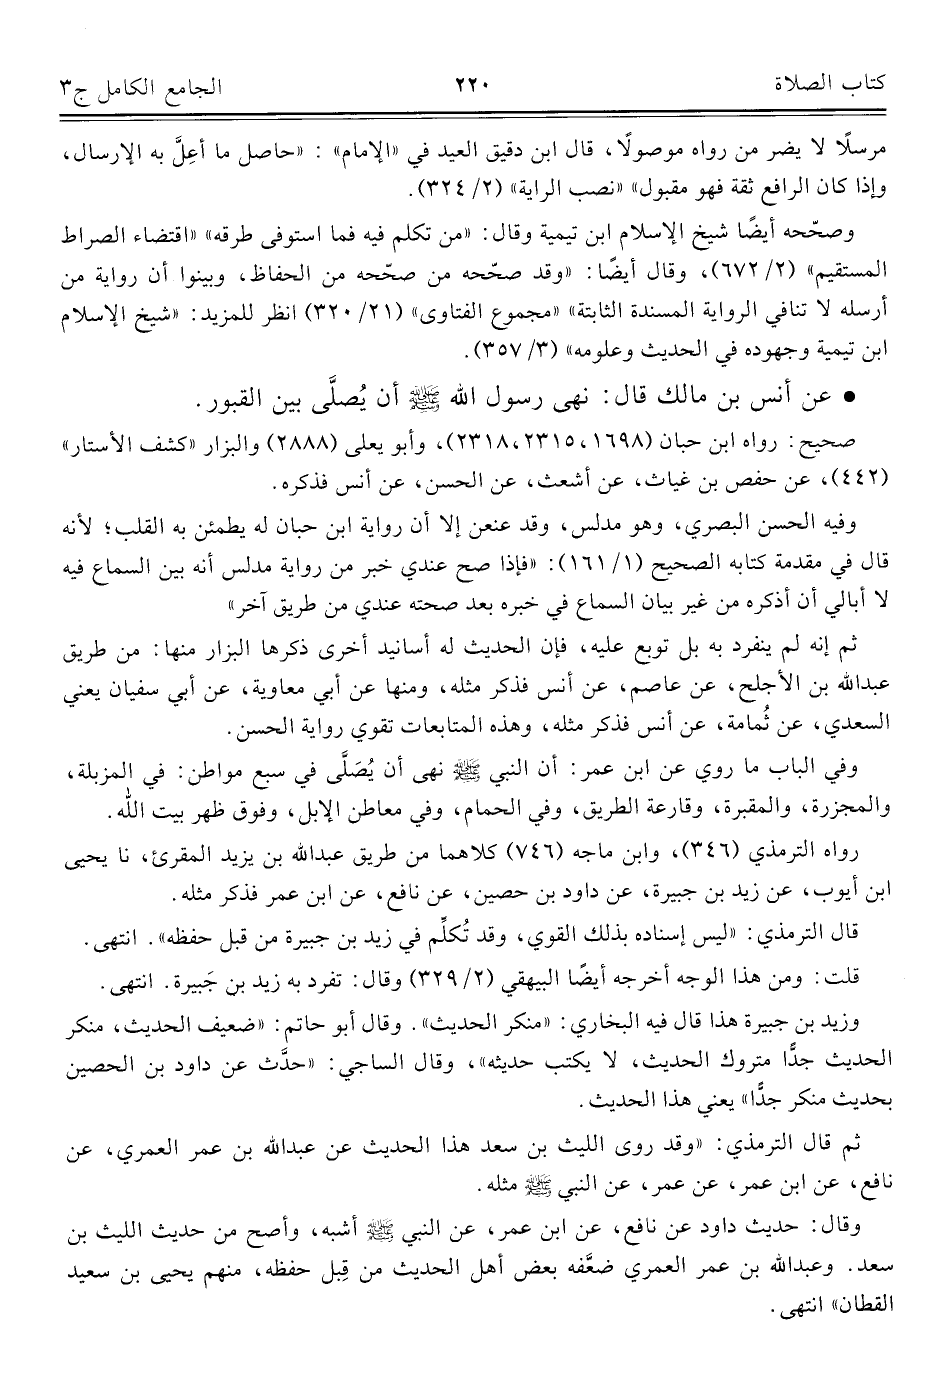 كتاب الصلاة ٢٢٠ الجامع الكامل ج٣
مرسلًا لا يضر من رواه موصولًا، قال ابن دقيق العيد في «الإمام» : «حاصل ما أعِلَّ به الإرسال،
وإذا كان الرافع ثقة فهو مقبول» «نصب الراية» (٢/ ٣٢٤).
وصحّحه أيضًا شيخ الإسلام ابن تيمية وقال: «من تكلم فيه فما استوفى طرقه» «اقتضاء الصراط
المستقيم» (٢/ ٦٧٢)، وقال أيضًا: «وقد صحّحه من صحّحه من الحفاظ، وبينوا أن رواية من
أرسله لا تنافي الرواية المسندة الثابتة» «مجموع الفتاوى» (٢١/ ٣٢٠) انظر للمزيد: «شيخ الإسلام
ابن تيمية وجهوده في الحديث وعلومه» (٣/ ٣٥٧).
• عن أنس بن مالك قال: نهى رسول الله ﷺ أن يُصلَّى بين القبور.
صحيح: رواه ابن حبان (١٦٩٨، ٢٣١٥، ٢٣١٨)، وأبو يعلى (٢٨٨٨) والبزار «كشف الأستار»
(٤٤٢)، عن حفص بن غياث، عن أشعث، عن الحسن، عن أنس فذكره.
وفيه الحسن البصري، وهو مدلس، وقد عنعن إلا أن رواية ابن حبان له يطمئن به القلب؛ لأنه
قال في مقدمة كتابه الصحيح (١/ ١٦١): «فإذا صح عندي خبر من رواية مدلس أنه بين السماع فيه
لا أبالي أن أذكره من غير بيان السماع في خبره بعد صحته عندي من طريق آخر»
ثم إنه لم ينفرد به بل توبع عليه، فإن الحديث له أسانيد أخرى ذكرها البزار منها: من طريق
عبدالله بن الأجلح، عن عاصم، عن أنس فذكر مثله، ومنها عن أبي معاوية، عن أبي سفيان يعني
السعدي، عن ثُمامة، عن أنس فذكر مثله، وهذه المتابعات تقوي رواية الحسن.
وفي الباب ما روي عن ابن عمر: أن النبي ﷺ نهى أن يُصَلَّى في سبع مواطن: في المزبلة،
والمجزرة، والمقبرة، وقارعة الطريق، وفي الحمام، وفي معاطن الإبل، وفوق ظهر بيت الله.
رواه الترمذي (٣٤٦)، وابن ماجه (٧٤٦) كلاهما من طريق عبدالله بن يزيد المقرئ، نا يحيى
ابن أيوب، عن زيد بن جبيرة، عن داود بن حصين، عن نافع، عن ابن عمر فذكر مثله.
قال الترمذي: «ليس إسناده بذلك القوي، وقد تُكلِّم في زيد بن جبيرة من قبل حفظه». انتهى.
قلت: ومن هذا الوجه أخرجه أيضًا البيهقي (٢/ ٣٢٩) وقال: تفرد به زيد بن جَبيرة. انتهى.
وزيد بن جبيرة هذا قال فيه البخاري: «منكر الحديث». وقال أبو حاتم: «ضعيف الحديث، منكر
الحديث جدًّا متروك الحديث، لا يكتب حديثه»، وقال الساجي: «حدَّث عن داود بن الحصين
بحديث منكر جدًّا» يعني هذا الحديث.
ثم قال الترمذي: «وقد روى الليث بن سعد هذا الحديث عن عبدالله بن عمر العمري، عن
نافع، عن ابن عمر، عن عمر، عن النبي ﷺ مثله.
وقال: حديث داود عن نافع، عن ابن عمر، عن النبي ﷺ أشبه، وأصح من حديث الليث بن
سعد. وعبدالله بن عمر العمري ضعَّفه بعض أهل الحديث من قِبل حفظه، منهم يحيى بن سعيد
القطان» انتهى.